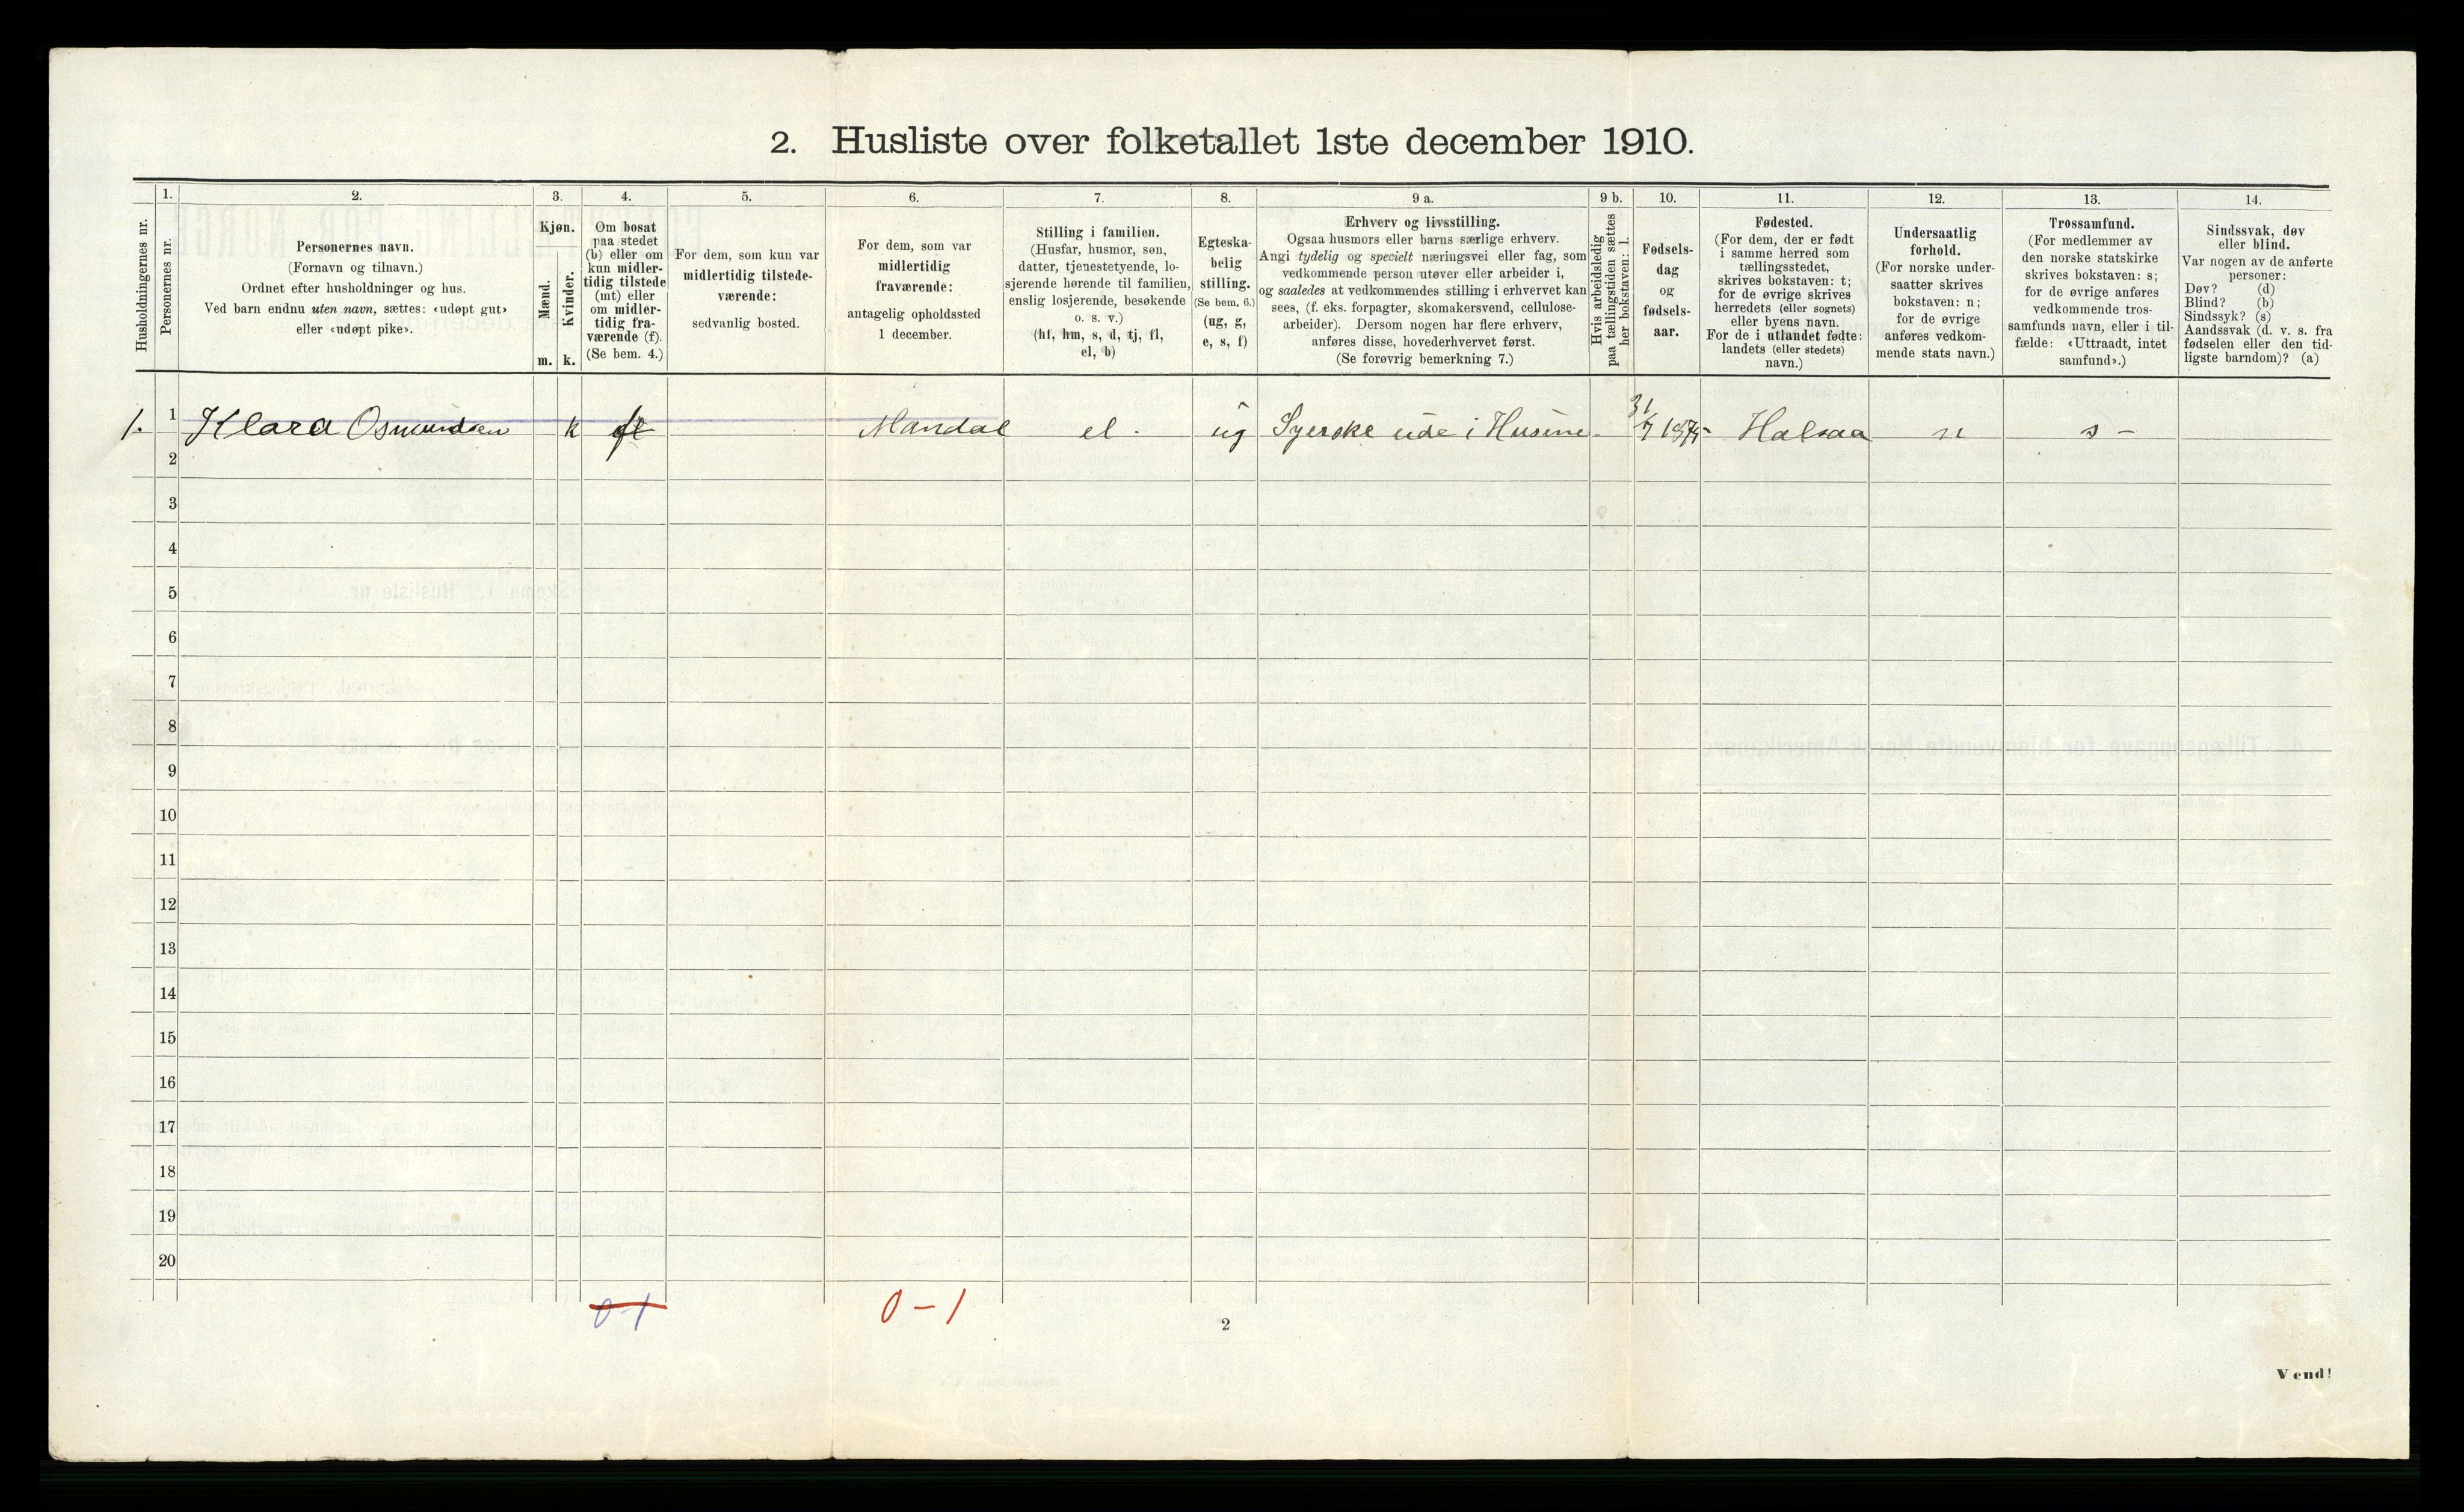 2. Husliste over folketallet 1ste december 1910.
Husholdningernes nr.
1.
Personernes nr.
2.
Personernes navn.
(Fornavn og tilnavn.)
Ordnet efter husholdninger og hus.
Ved barn endnu uten navn, sættes: «udøpt gut»
eller «udøpt pike».
3.
Kjøn.
Mænd.
m.
Kvinder.
k.
4.
Om bosat
paa stedet
(b) eller om
kun midler-
tidig tilstede
(mt) eller
om midler-
tidig fra-
værende (f).
(Se bem. 4.)
5.
For dem, som kun var
midlertidig tilstede-
værende:
sedvanlig bosted.
6.
For dem, som var
midlertidig
fraværende:
antagelig opholdssted
1 december.
7.
Stilling i familien.
(Husfar, husmor, søn,
datter, tjenestetyende, lo-
sjerende hørende til familien,
enslig losjerende, besøkende
o. s. v.)
(hf, hm, s, d, tj, fl,
el, b)
8.
Egteska-
belig
stilling.
(Se bem. 6.)
(ug, g,
e, s, f)
9 a.
Erhverv og livsstilling.
Ogsaa husmors eller barns særlige erhverv.
Angi tydelig og specielt næringsvei eller fag, som
vedkommende person utøver eller arbeider i,
og saaledes at vedkommendes stilling i erhvervet kan
sees, (f. eks. forpagter, skomakersvend, cellulose-
arbeider). Dersom nogen har flere erhverv,
anføres disse, hovederhvervet først.
(Se forøvrig bemerkning 7.)
9 b.
Hvis arbeidsledig
paa tællingstiden sættes
her bokstaven: l.
10.
Fødsels-
dag
og
fødsels-
aar.
11.
Fødested.
(For dem, der er født
i samme herred som
tællingsstedet,
skrives bokstaven: t;
for de øvrige skrives
herredets (eller sognets)
eller byens navn.
For de i utlandet fødte:
landets (eller stedets)
navn.)
12.
Undersaatlig
forhold.
(For norske under-
saatter skrives
bokstaven: n;
for de øvrige
anføres vedkom-
mende stats navn.)
13.
Trossamfund.
(For medlemmer av
den norske statskirke
skrives bokstaven: s;
for de øvrige anføres
vedkommende tros-
samfunds navn, eller i til-
fælde: «Uttraadt, intet
samfund».)
14.
Sindssvak, døv
eller blind.
Var nogen av de anførte
personer:
Døv? (d)
Blind? (b)
Sindssyk? (s)
Aandssvak (d. v. s. fra
fødselen eller den tid-
ligste barndom)? (a)
1. 1 Klara Osmundsen k Mandal el. ug Syerske ude i Husene. 31/7 Halsaa n s -
2
3
4
5
6
7
8
9
10
11
12
13
14
15
16
17
18
19
20
0-1 0-1
2
Vend!